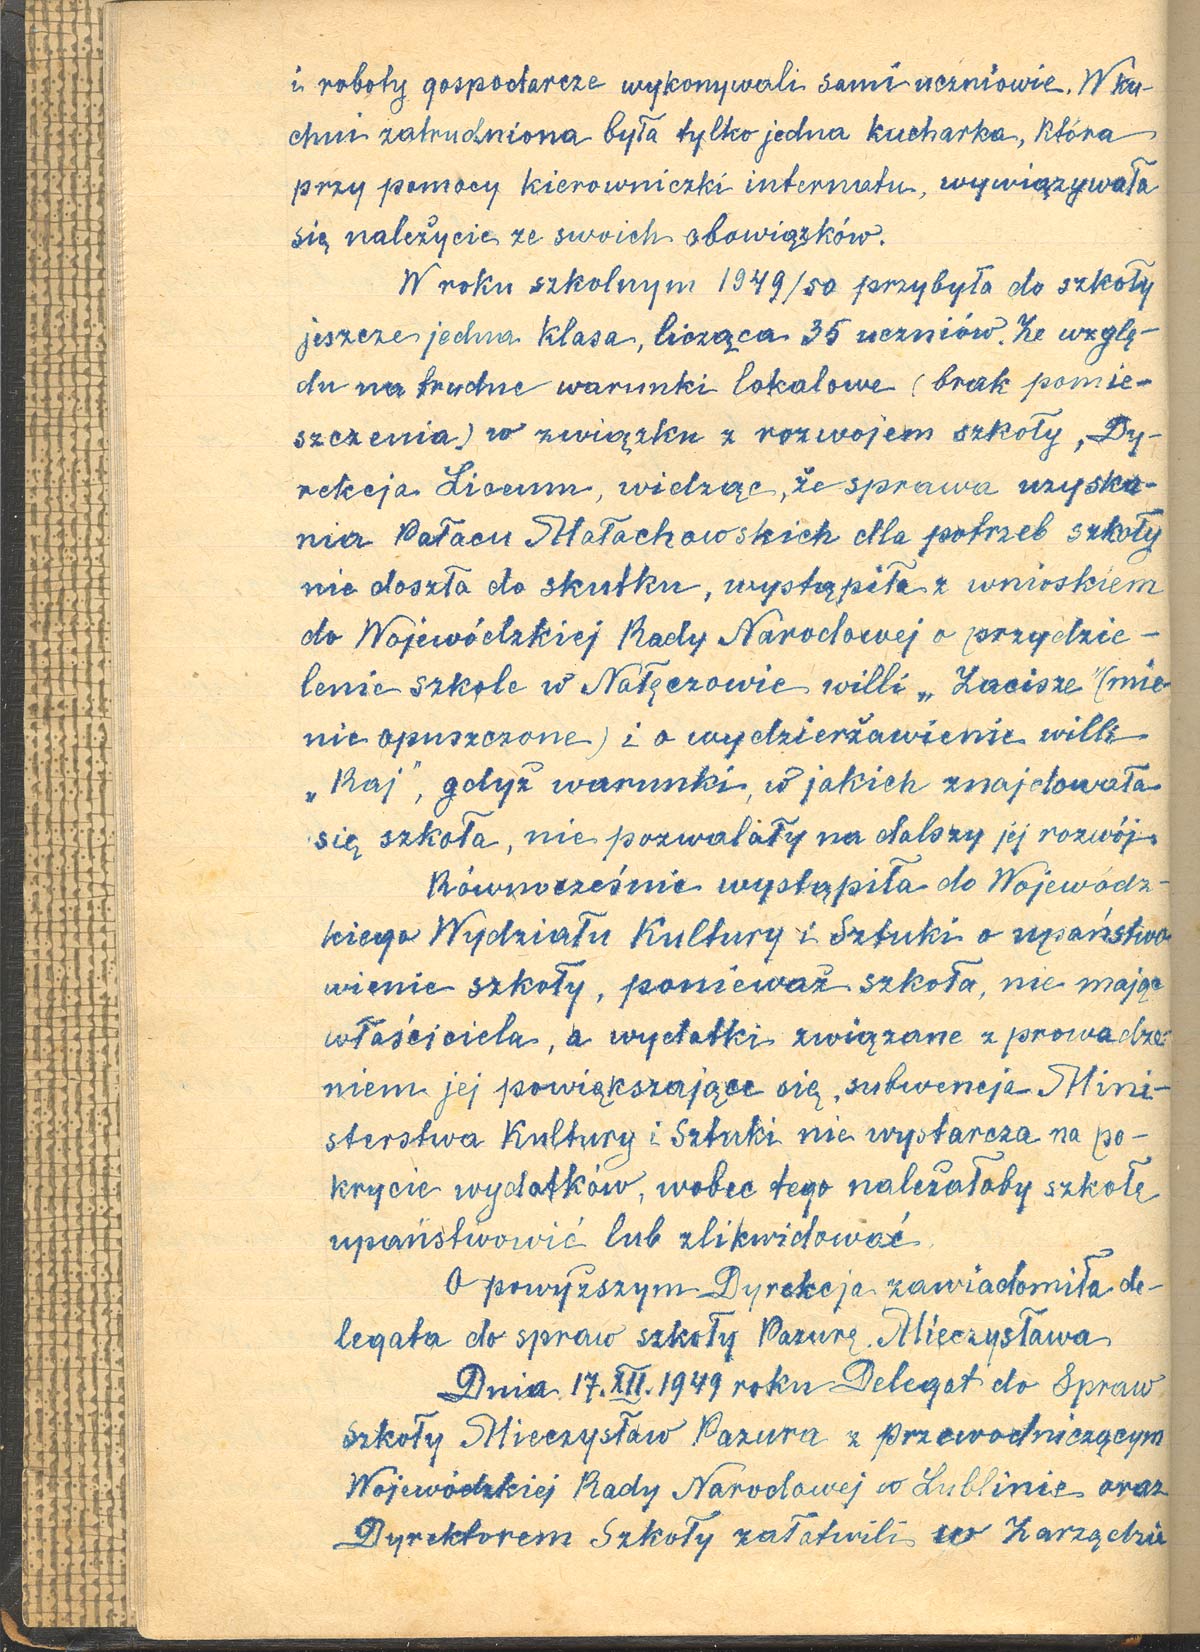 i roboty gospodarcze wykonywali sami uczniowie. W ku-
chni zatrudniona była tylko jedna kucharka, która
przy pomocy kierowniczki internatu, wywiązywała
się należycie ze swoich obowiązków.
W roku szkolnym 1949/50 przybyła do szkoły
jeszcze jedna klasa, licząca 35 uczniów. Ze wzglę-
du na trudne warunki lokalowe (brak pomie-
szczenia) w związku z rozwojem szkoły, Dy-
rekcja Liceum, widząc, że sprawa uzyska-
nia Pałacu Małachowskich dla potrzeb szkoły
nie doszła do skutku, wystąpiła z wnioskiem
do Wojewódzkiej Rady Narodowej o przydzie-
lenie szkole w Nałęczowie willi „Zacisze" (mie-
nie opuszczone) i o wydzierżawienie willi
„Raj", gdyż warunki, w jakich znajdowała
się szkoła, nie pozwalały na dalszy jej rozwój.
Równocześnie wystąpiła do Wojewódz-
kiego Wydziału Kultury i Sztuki o upaństwo
wienie szkoły, ponieważ szkoła, nie mając
właściciela, a wydatki związane z prowadze-
niem jej powiększające się, subwencja Mini-
sterstwa Kultury i Sztuki nie wystarcza na po-
krycie wydatków, wobec tego należałoby szkołę
upaństwowić lub zlikwidować
O powyższym Dyrekcja zawiadomiła de-
legata do spraw szkoły Pazurę Mieczysława
Dnia 17.XII.1949 roku Delegat do Spraw
Szkoły Mieczysław Pazura z przewodniczącym
Wojewódzkiej Rady Narodowej w Lublinie oraz
Dyrektorem Szkoły załatwili w Zarządzie